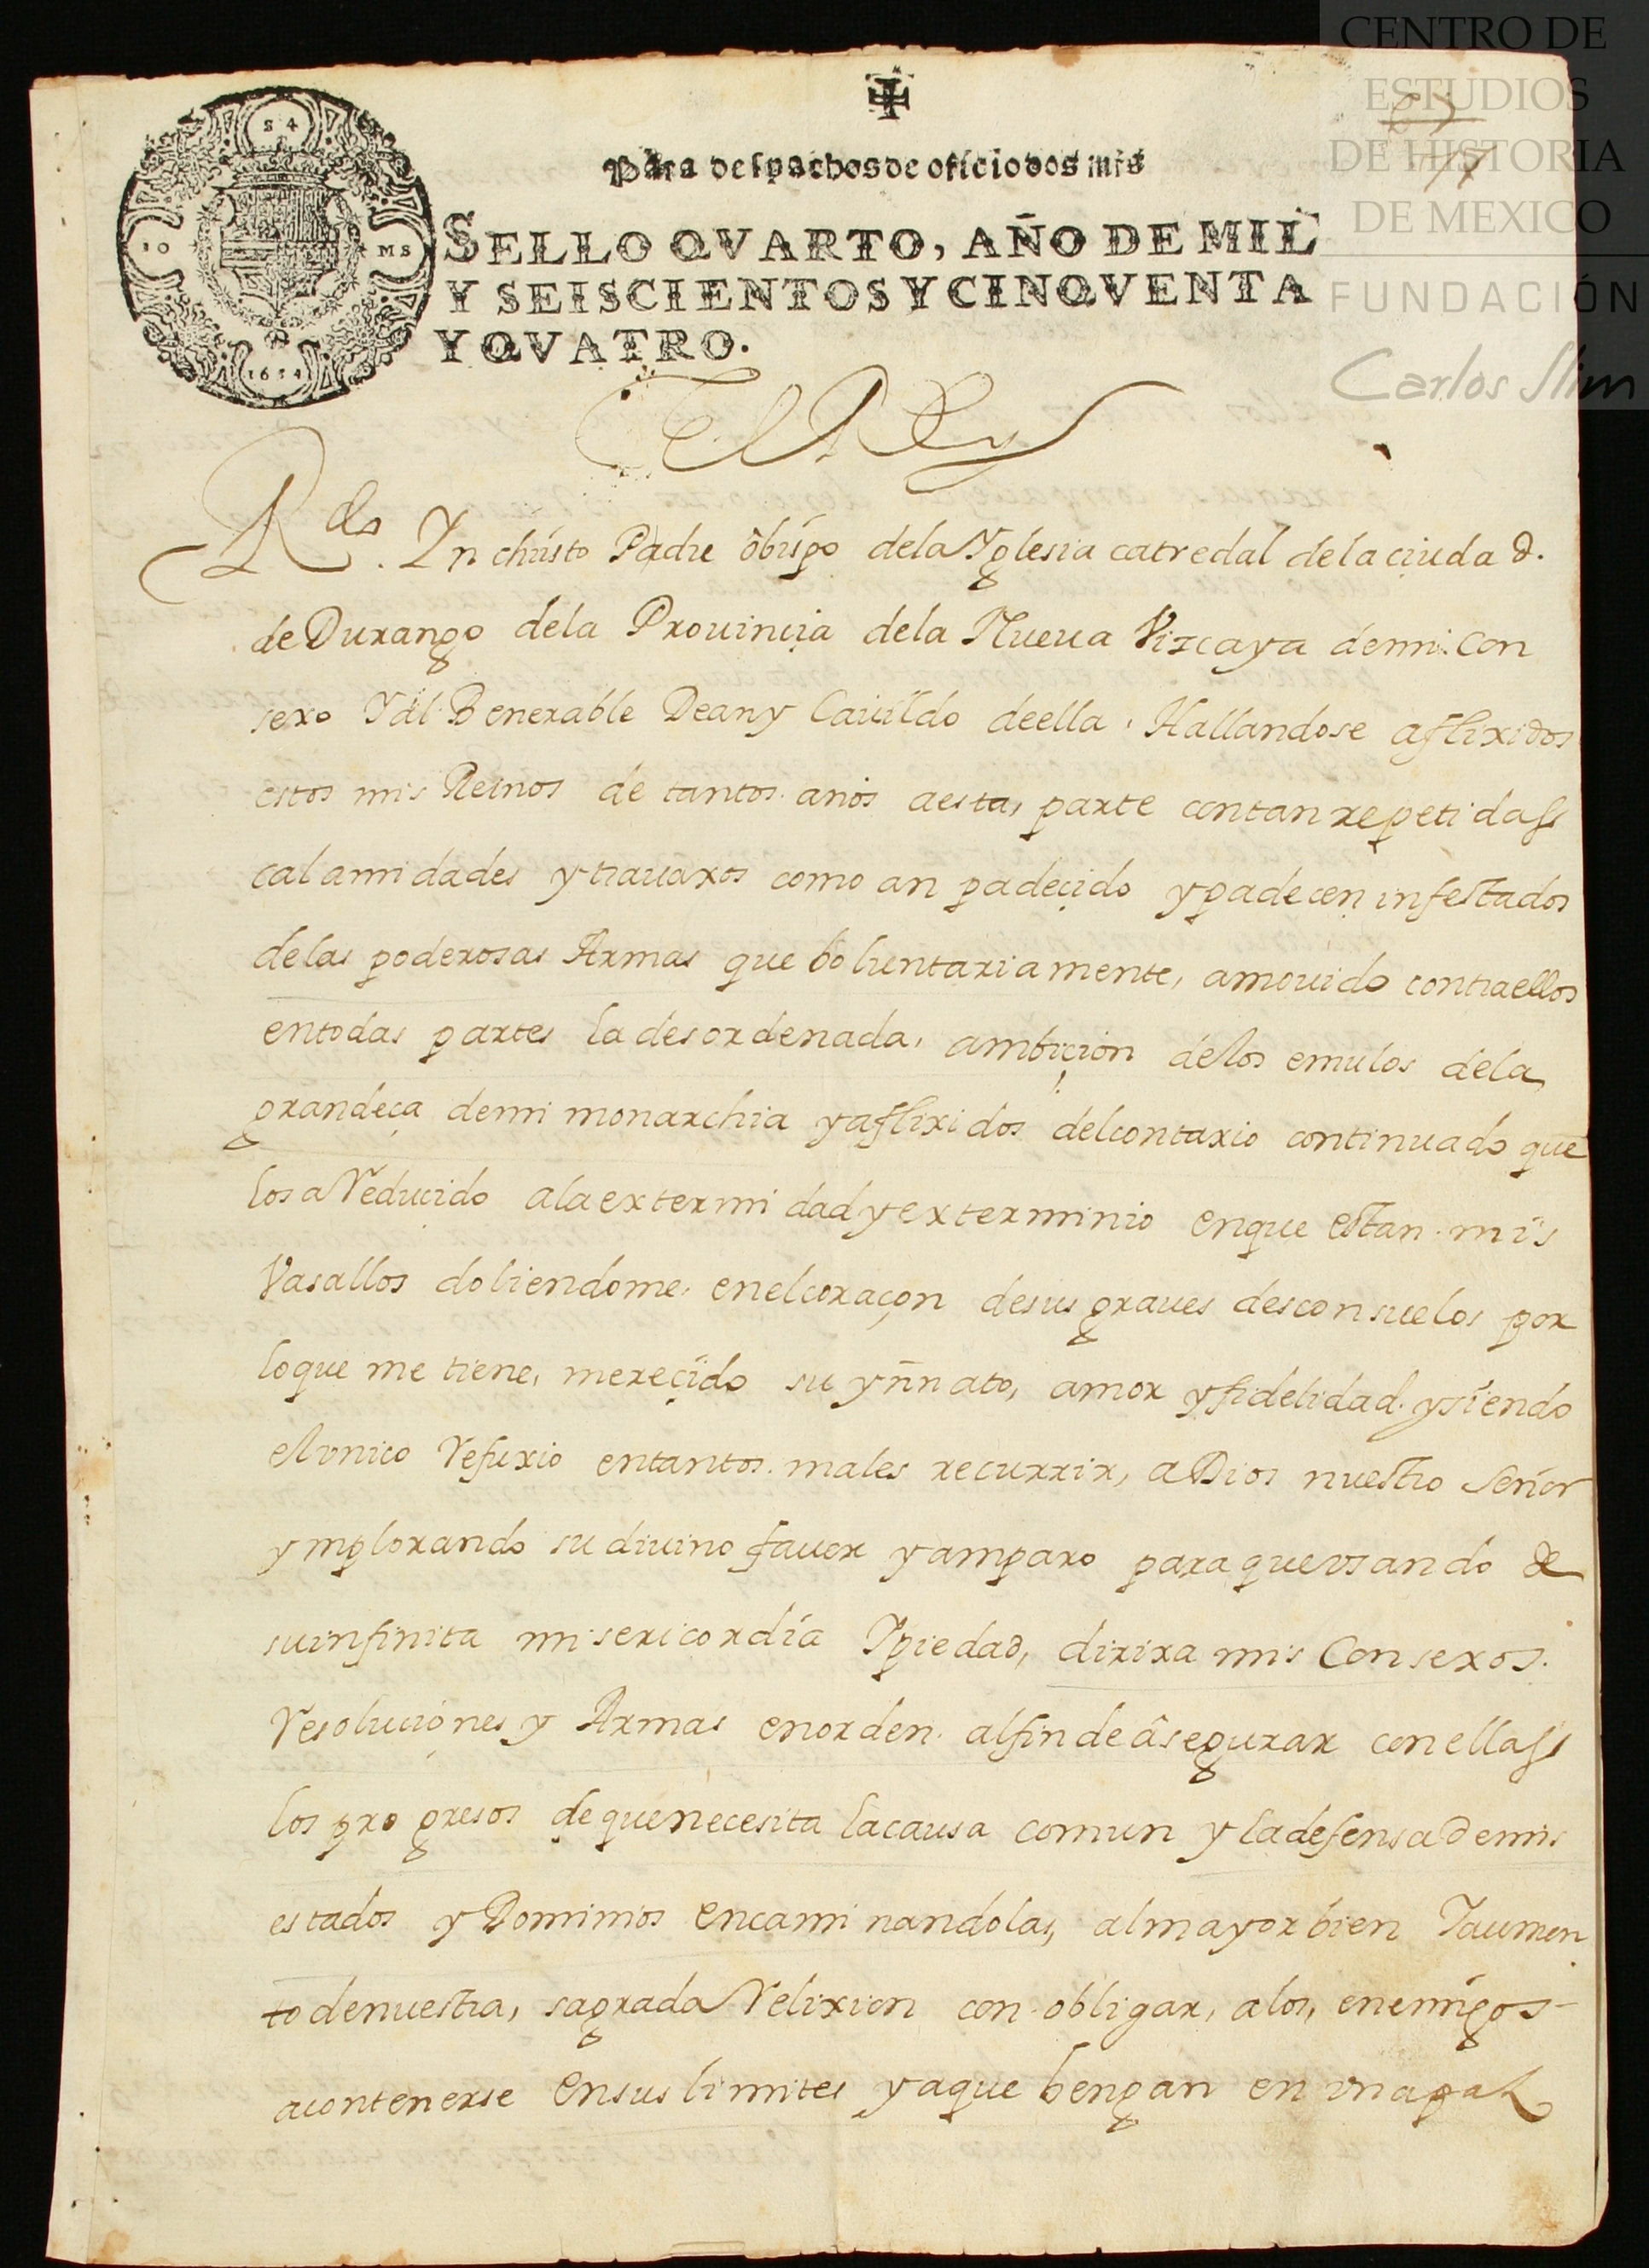 CENTRO DE
ESTUDIOS
DE HISTORIA
DE MEXICO
FUNDACIÓN
Carlos Slim
Para despachos de oficio dos mrs
S 4
IO
MS
1654
SELLO QVARTO, AÑO DE MIL
Y SEISCIENTOS Y CINQVENTA
Y QVATRO.
El Rey
Rdo. In christo Padre óbispo dela Yglesia catredal dela ciudad.
de Durango dela Provinçia dela Nueua Vizcaya demi Con
sexo Yal Benerable Dean y Cauildo deella, Hallandose aflixidos
estos mis Reinos de tantos años aesta, parte contan repetidass
calamidades ytrauaxos como an padeçido ypadecen infestados
delas poderosas Armas que boluntariamente, amouido contraellos
entodas partes la desordenada, ambiçion delos emulos dela
grandeça demi monarchia yaflixidos delcontaxio continuado que
los a Reducido alaextermidad yexterminio enque estan mis
Vasallos doliendome, enelcoraçon desus graues desconsuelos por
loque me tiene, mereçido su ynnato, amor yfidelidad. ysiendo
elvnico Refuxio entantos males recurrir, aDios nuestro Señor
ymplorando su diuino fauor yamparo paraquevsando de
suinfinita misericordia Ypiedad, dirixa mis Consexos.
Resoluçiones y Armas enorden alfin deâsegurar conellass
los progresos de quenecesita lacausa comun yladefensa demis
estados y Dominios encaminandolas, almayorbien Yaumen
to denuestra, sagrada Relixion con obligar, alos, enemigos
acontenerse ensus limites yaque bengan en vnapaz